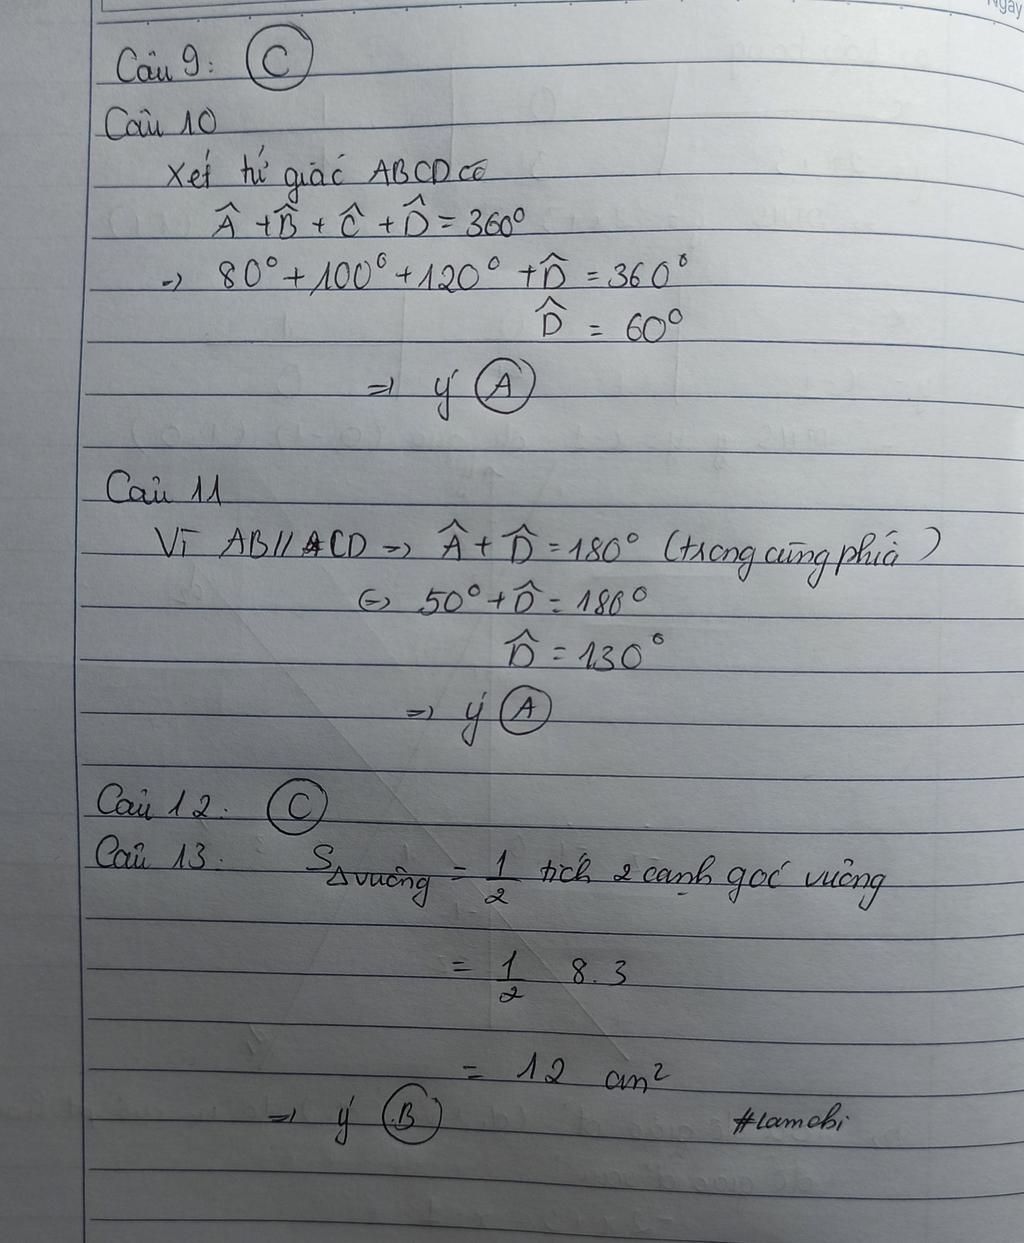 Ngày
Câu 9: C
Câu 10
Xét tứ giác ABCD có
Â + B̂ + Ĉ + D̂ = 360°
→ 80° + 100° + 120° + D̂ = 360°
D̂ = 60°
⇒ ý A
Câu 11
Vì AB // CD → Â + D̂ = 180° (trong cùng phía)
⇔ 50° + D̂ = 180°
D̂ = 130°
⇒ ý A
Câu 12. C
Câu 13. S Δ vuông = 1/2 tích 2 cạnh góc vuông
= 1/2 8.3
= 12 cm²
⇒ ý B
#lamchi